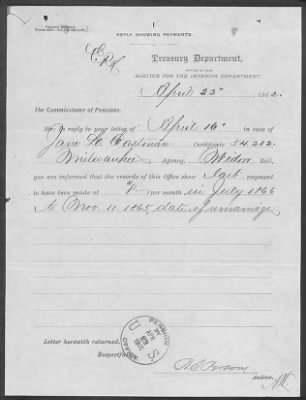 REPLY SHOWING PAYMENTS.
Treasury Department,
OFFICE OF THE
AUDITOR FOR THE INTERIOR DEPARTMENT,
April 22" 1902.
The Commissioner of Pensions.
Sir: In reply to your letter of April 16" in case of
Jane L. Eastman Certificate 54,212.
Milwaukee Agency, Widow Roll,
you are informed that the records of this Office show last payment
to have been made at $8 per month in July 1866
to Nov. 11. 1865, date of remarriage
U S
PENSION OFFICE
APR
Letter herewith returned.
Respectfully,
R.S. Person
Auditor.